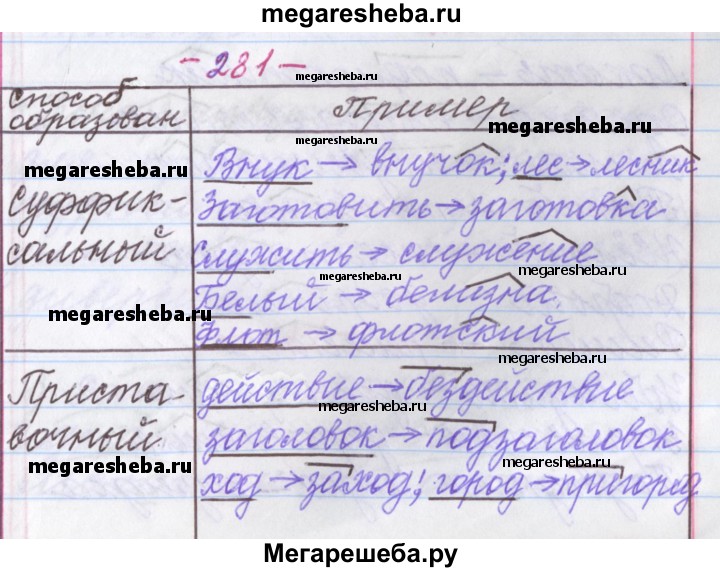 megaresheba.ru
- 281 -
megaresheba.ru
способ образован
Пример
megaresheba.ru
megaresheba.ru
megaresheba.ru
Суффик-
сальный
Внук → внучок; лес → лесник
Заготовить → заготовка
megaresheba.ru
Служить → служение
megaresheba.ru
megaresheba.ru
Белый → белизна
megaresheba.ru
флот → флотский
megaresheba.ru
Приста-
вочный
действие → бездействие
megaresheba.ru
заголовок → подзаголовок
megaresheba.ru
megaresheba.ru
ход → заход; город → пригород
megaresheba.ru
Мегарешеба.ру